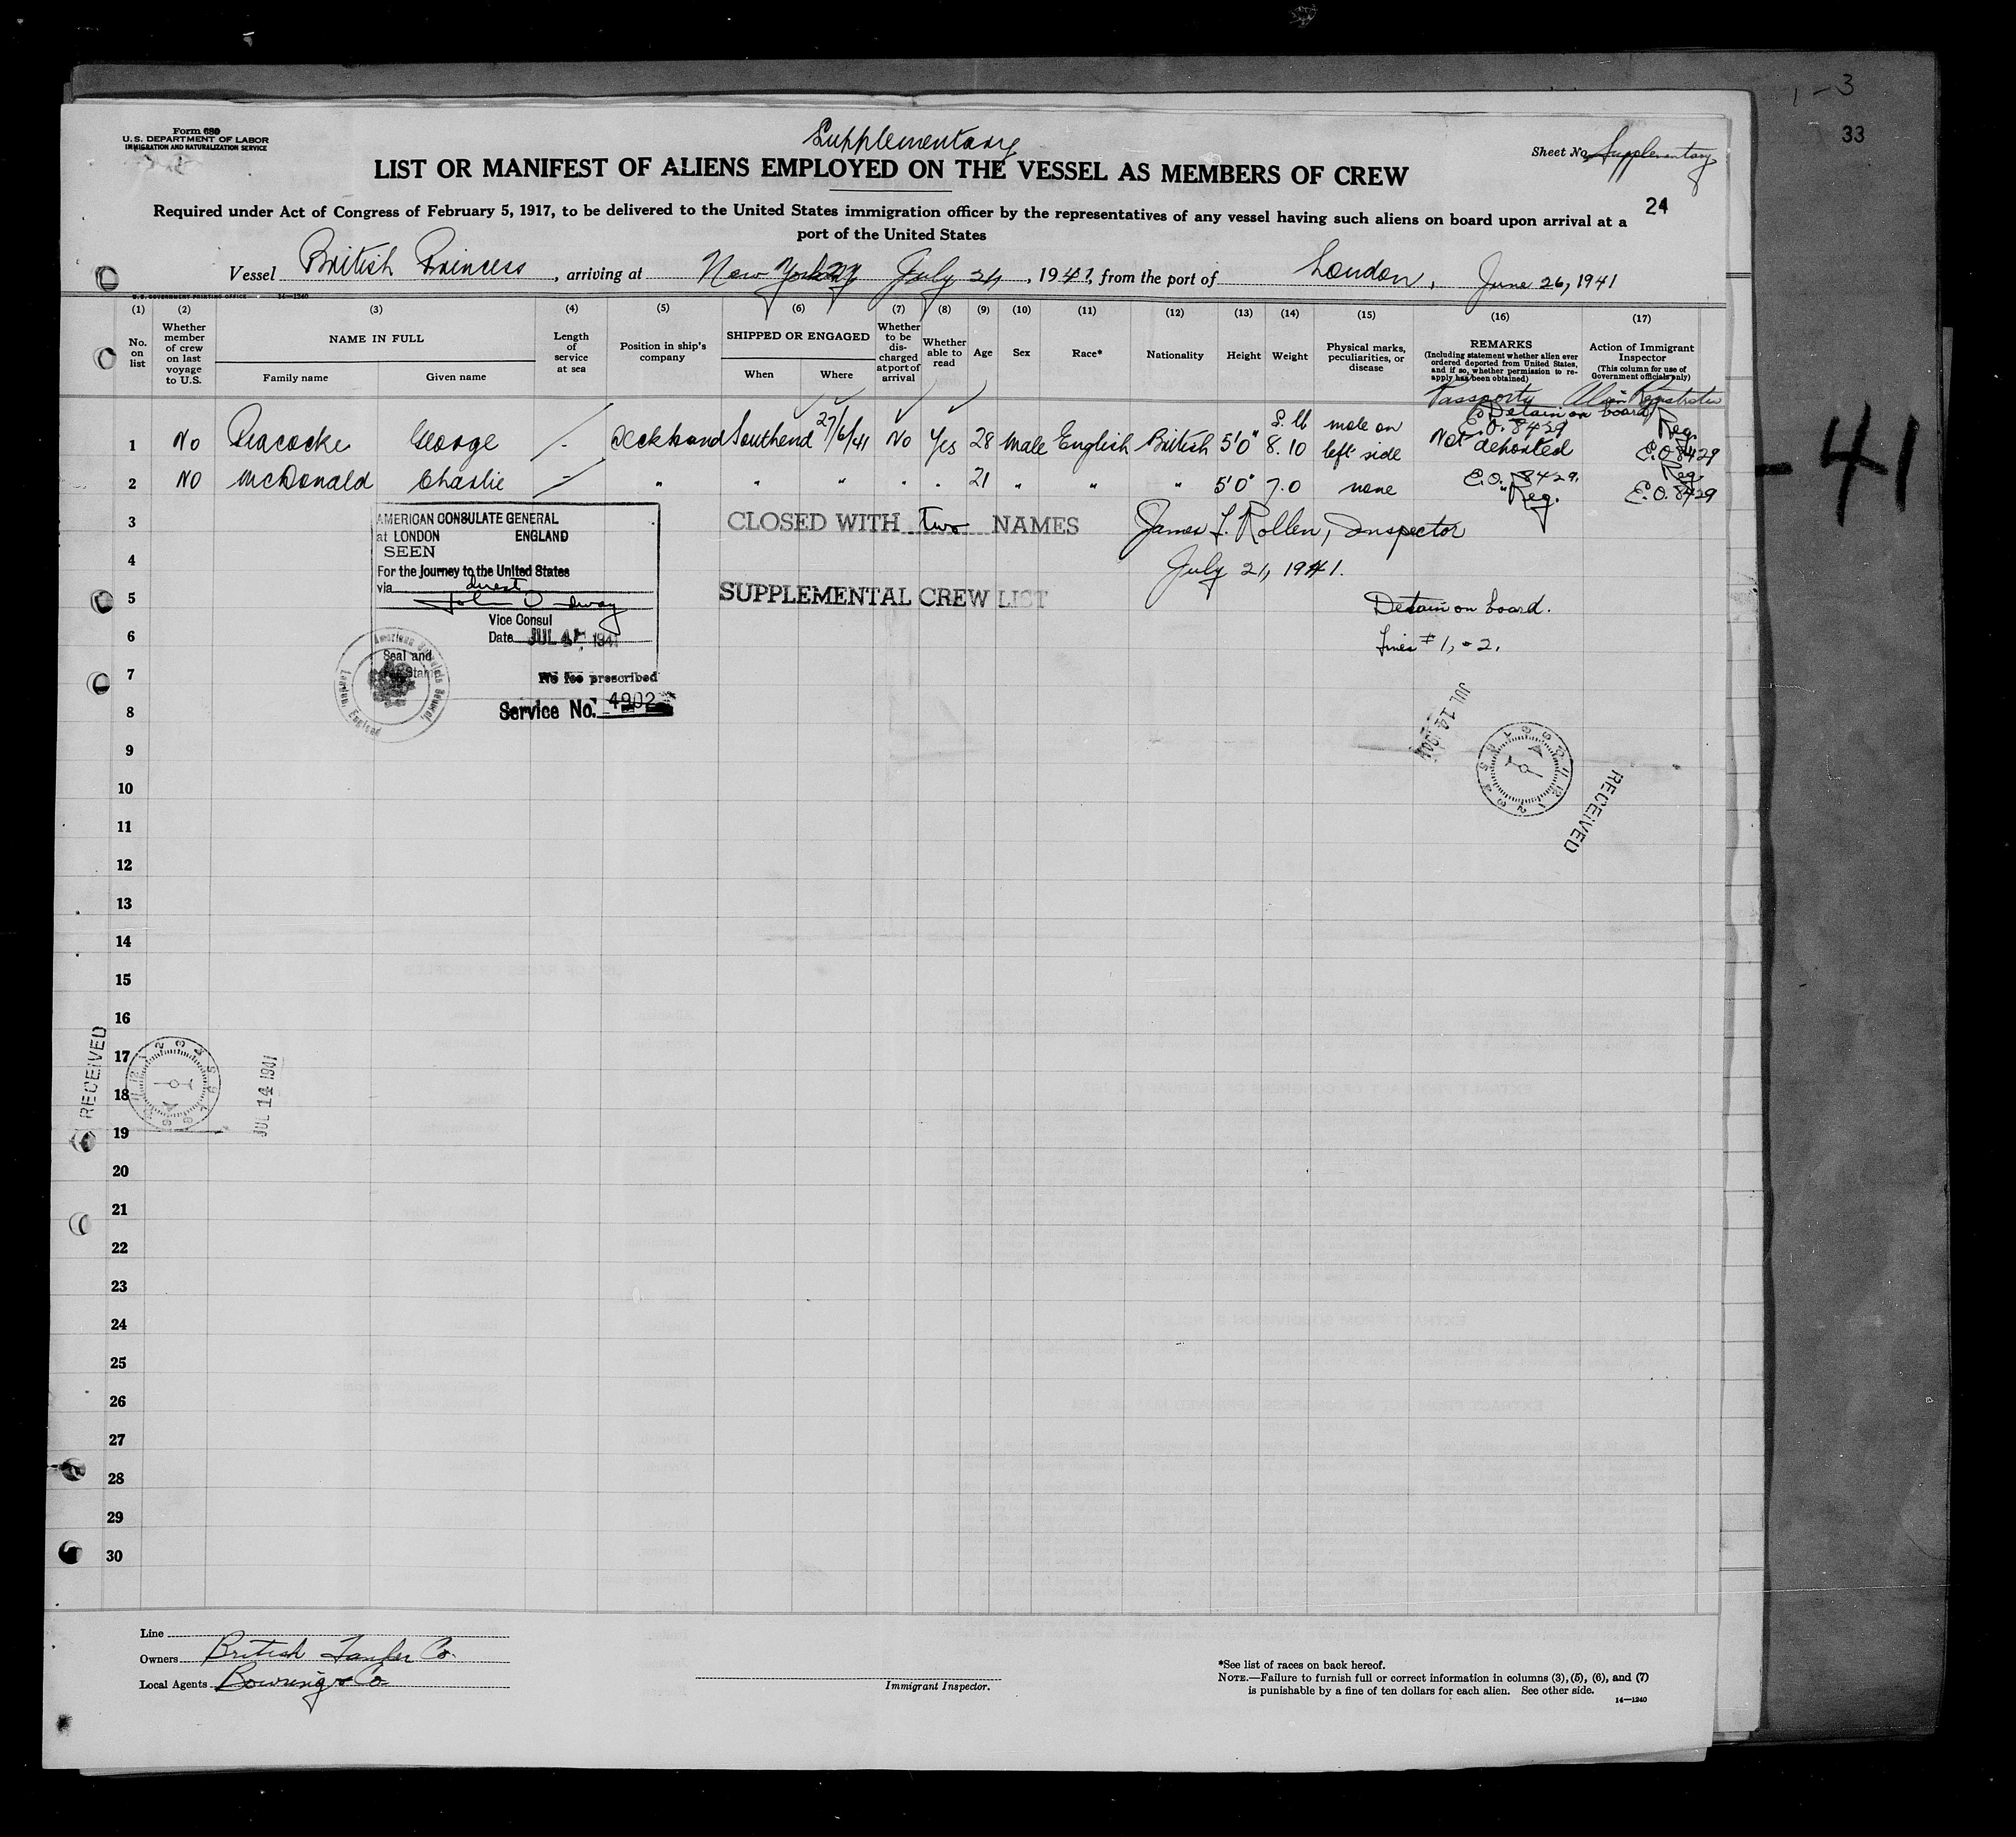 1 - 3
33
Form 680
U.S. DEPARTMENT OF LABOR
IMMIGRATION AND NATURALIZATION SERVICE
Supplementary
Sheet No. Supplementary
LIST OR MANIFEST OF ALIENS EMPLOYED ON THE VESSEL AS MEMBERS OF CREW
24
Required under Act of Congress of February 5, 1917, to be delivered to the United States immigration officer by the representatives of any vessel having such aliens on board upon arrival at a
port of the United States
Vessel British Princess, arriving at New York July 21, 1941, from the port of London, June 26, 1941
U.S. GOVERNMENT PRINTING OFFICE 14—1240
(1) (2) (3) (4) (5) (6) (7) (8) (9) (10) (11) (12) (13) (14) (15) (16) (17)
No. on list
Whether member of crew on last voyage to U.S.
NAME IN FULL
Family name
Given name
Length of service at sea
Position in ship's company
SHIPPED OR ENGAGED
When
Where
Whether to be discharged at port of arrival
Whether able to read
Age
Sex
Race*
Nationality
Height
Weight
Physical marks, peculiarities, or disease
REMARKS
(Including statement whether alien ever ordered deported from United States, and if so, whether permission to reapply has been obtained)
Action of Immigrant Inspector
(This column for use of Government officials only)
Passports Alien Registration
Detain on board
1 No Peacocke George - Deckhand Southend 27/6/41 No Yes 28 Male English British 5'0" 8.10 mole on left side E.O. 8429 Not deported Reg. E.O. 8429
2 NO McDonald Charlie - " " " " " 21 " " " 5'0" 7.0 none E.O. 8429. " Reg. Reg. E.O. 8429
3
AMERICAN CONSULATE GENERAL
at LONDON ENGLAND
SEEN
For the Journey to the United States
via direct
Vice Consul
Date JUL 1941
Seal and
Fee Stamp
American Consulate General, London, England
No fee prescribed
Service No. 4902
CLOSED WITH two NAMES
James F. Rollen, Inspector
July 21, 1941.
SUPPLEMENTAL CREW LIST
Detain on board.
Lines # 1, - 2.
4
5
6
7
8
9
10
11
12
13
14
15
16
17
18
19
20
21
22
23
24
25
26
27
28
29
30
JUL 14 1941
RECEIVED
RECEIVED
JUL 14 1941
- 41
Line
Owners British Tanker Co.
Local Agents Bowring & Co
Immigrant Inspector.
*See list of races on back hereof.
NOTE.—Failure to furnish full or correct information in columns (3), (5), (6), and (7)
is punishable by a fine of ten dollars for each alien. See other side.
14—1240